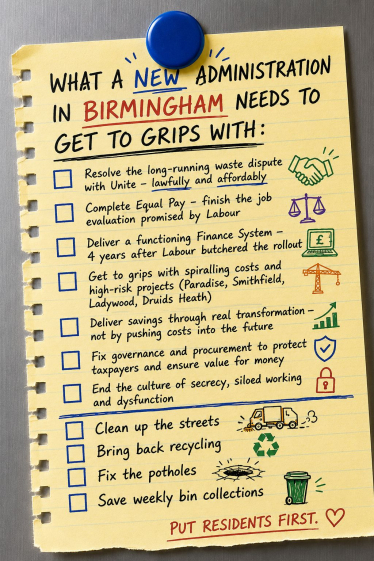 WHAT A NEW ADMINISTRATION
IN BIRMINGHAM NEEDS TO
GET TO GRIPS WITH:
Resolve the long-running waste dispute
with Unite – lawfully and affordably
Complete Equal Pay – finish the job
evaluation promised by Labour
Deliver a functioning Finance System –
4 years after Labour butchered the rollout
£
Get to grips with spiralling costs and
high-risk projects (Paradise, Smithfield,
Ladywood, Druids Heath)
Deliver savings through real transformation –
not by pushing costs into the future
Fix governance and procurement to protect
taxpayers and ensure value for money
End the culture of secrecy, siloed working
and dysfunction
Clean up the streets
Bring back recycling
Fix the potholes
Save weekly bin collections
PUT RESIDENTS FIRST.